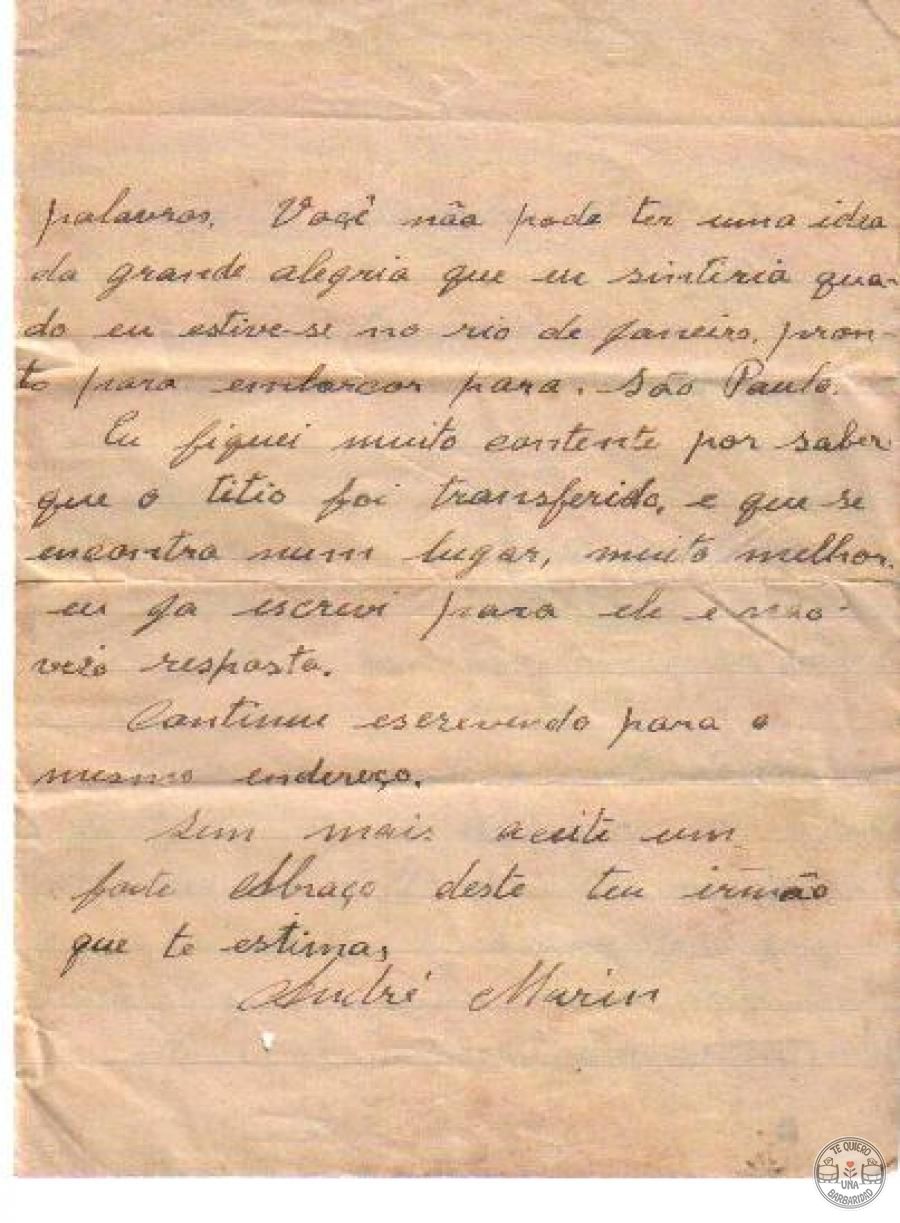 palavras. Voçê não pode ter uma idea
da grande alegria que eu sintiria quan-
do eu estive-se no rio de Janeiro, pron-
to para embarcar para. São Paulo.
Eu fiquei muito contente por saber
que o titio foi transferido, e que se
encontra num lugar, muito melhor.
eu ja escrevi para ele e não
veio resposta.
Continue escrevendo para o
mesmo endereço.
Sem mais aceite um
forte Abraço deste teu irmão
que te estima,
André Marin
TE QUIERO
UNA
BARBARIDAD